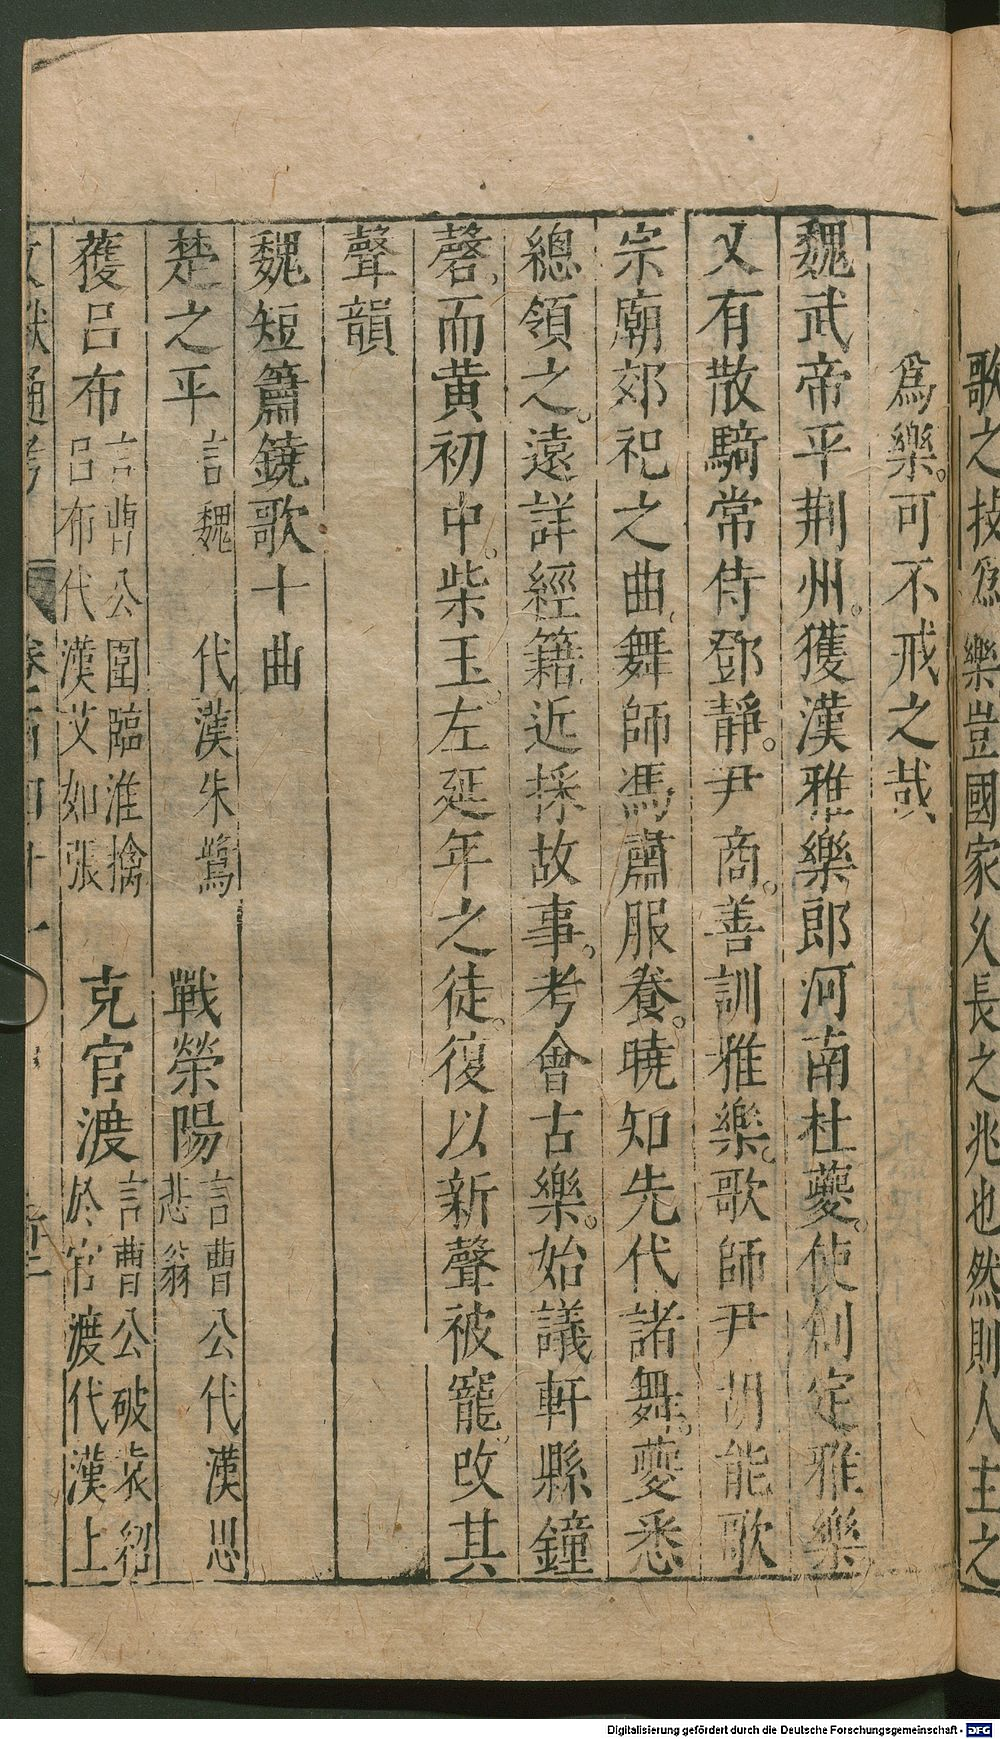 歌之技爲樂豈國家久長之兆也然則人主之
爲樂可不戒之哉
魏武帝平荆州獲漢雅樂郎河南杜夔使創定雅樂
又有散騎常侍鄧靜尹商善訓雅樂歌師尹胡能歌
宗廟郊祀之曲舞師馮肅服養曉知先代諸舞夔悉
總領之遠詳經籍近採故事考會古樂始議軒縣鐘
磬而黄初中柴玉左延年之徒復以新聲被寵改其
聲韻
魏短簫鐃歌十曲
楚之平言魏代漢朱鷺 戰滎陽言曹公代漢思悲翁
獲呂布言曹公圍臨淮擒呂布代漢艾如張 克官渡言曹公破袁紹於官渡代漢上
文獻通考 卷一百四十一
Digitalisierung gefördert durch die Deutsche Forschungsgemeinschaft - DFG